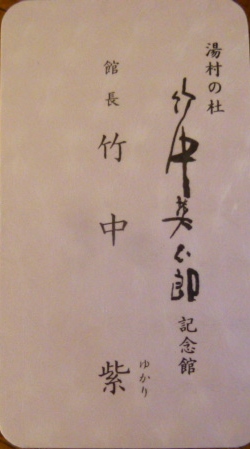 湯村の杜
竹中英太郎 記念館
館長 竹中 紫
ゆかり